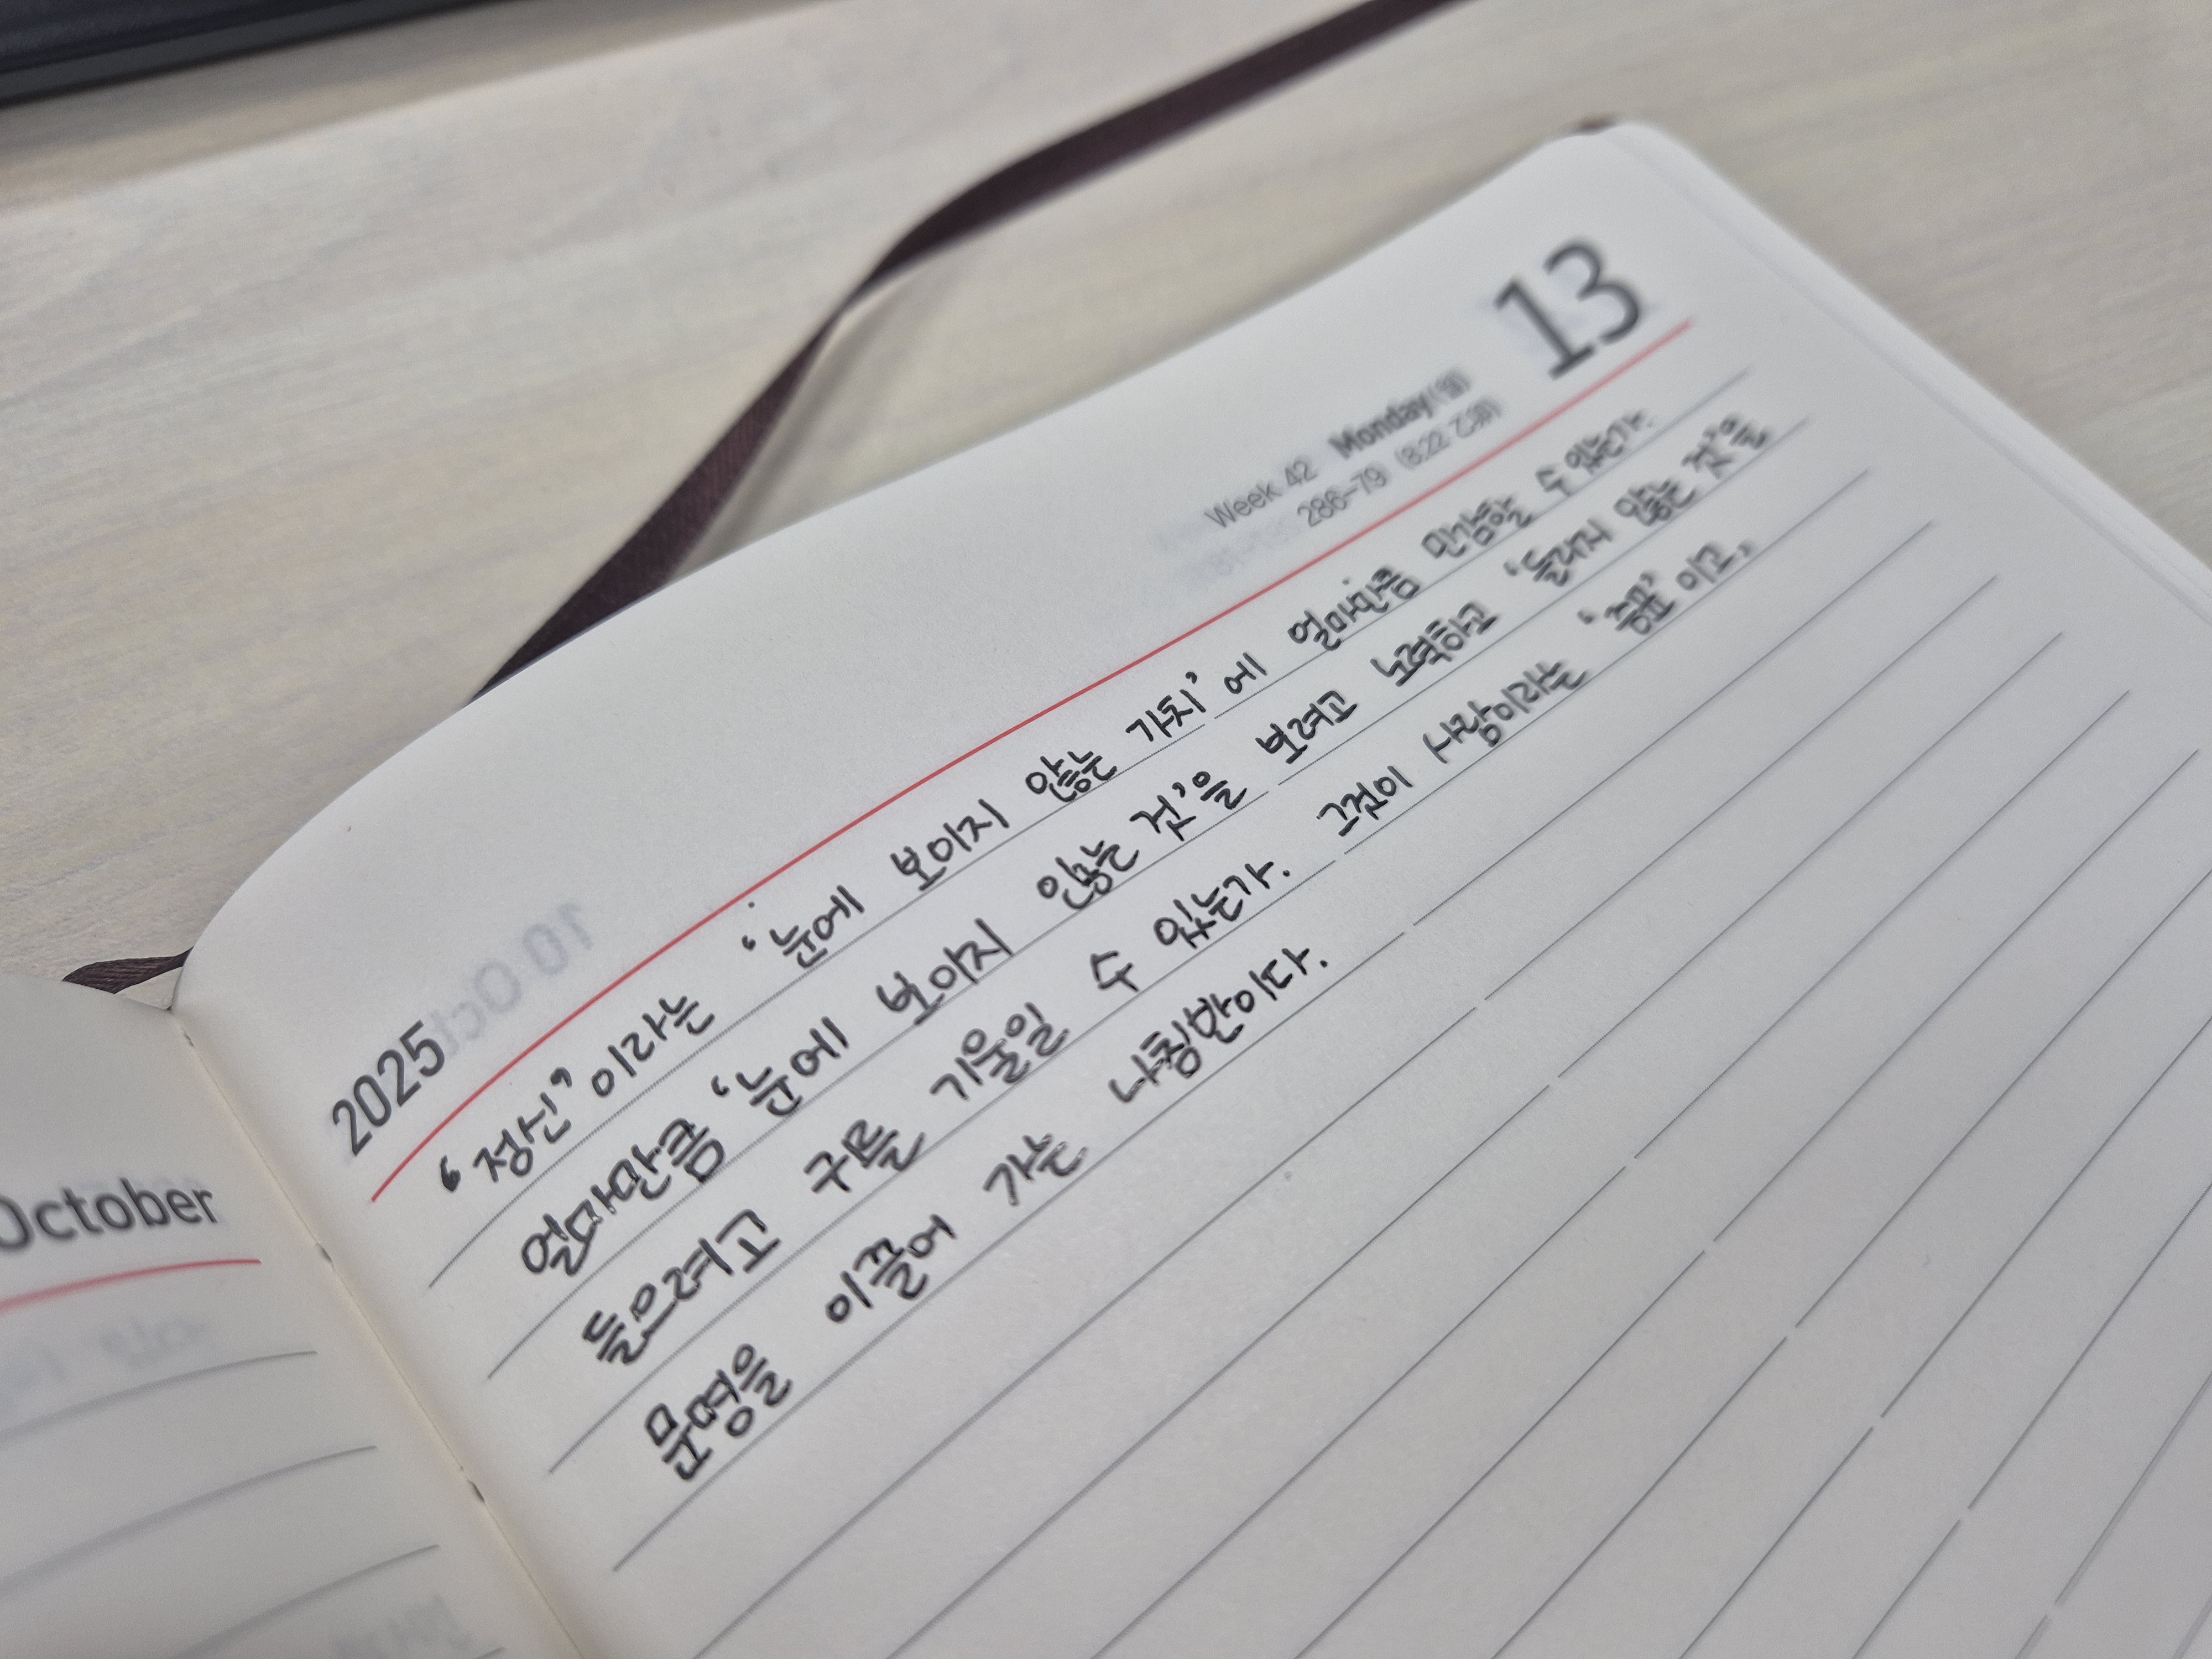 2025
13
Week 42 Monday(월)
286-79 (8.22 乙卯)
10 Oct
October
'정신'이라는 '눈에 보이지 않는 가치'에 얼마만큼 민감할 수 있는가.
얼마만큼 '눈에 보이지 않는 것'을 보려고 노력하고 '들리지 않는 것'을
들으려고 귀를 기울일 수 있는가. 그것이 사람이라는 '종묘' 이고,
문명을 이끌어 가는 나침반이다.